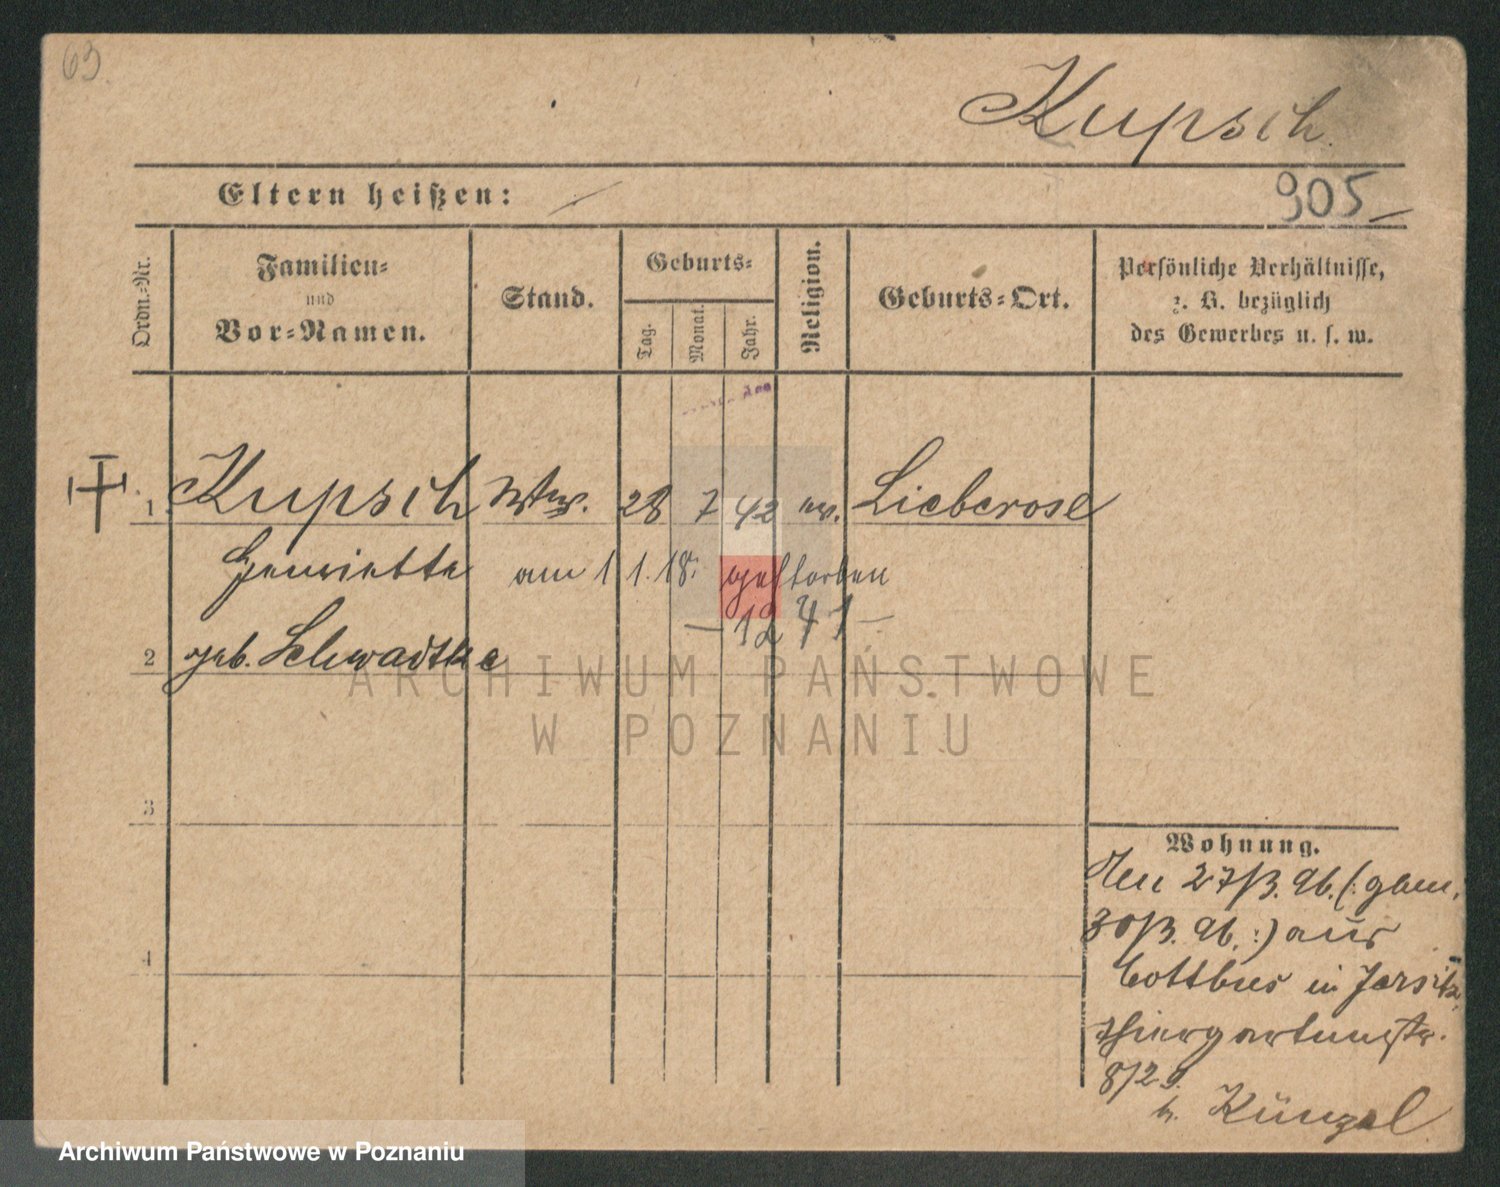 63.
Kupsch.
Eltern heißen: /
905
Ordn.=Nr.
Familien=
und
Vor=Namen.
Stand.
Geburts=
Tag.
Monat.
Jahr.
Religion.
Geburts=Ort.
Persönliche Verhältnisse,
z. B. bezüglich
des Gewerbes u. s. w.
1 Kupsch Wtw. 28 7 42 ev. Lieberose
Henriette am 11.1.18. gestorben
– 12 41 –
2 geb. Schwadtke
3
4
Wohnung.
Den 27/3. 96. (: gem.
30/3. 96. :) aus
Cottbus in Jersitz,
Thiergartenstr.
8/2 g.
b. Künzel
ARCHIWUM PAŃSTWOWE
W POZNANIU
Archiwum Państwowe w Poznaniu